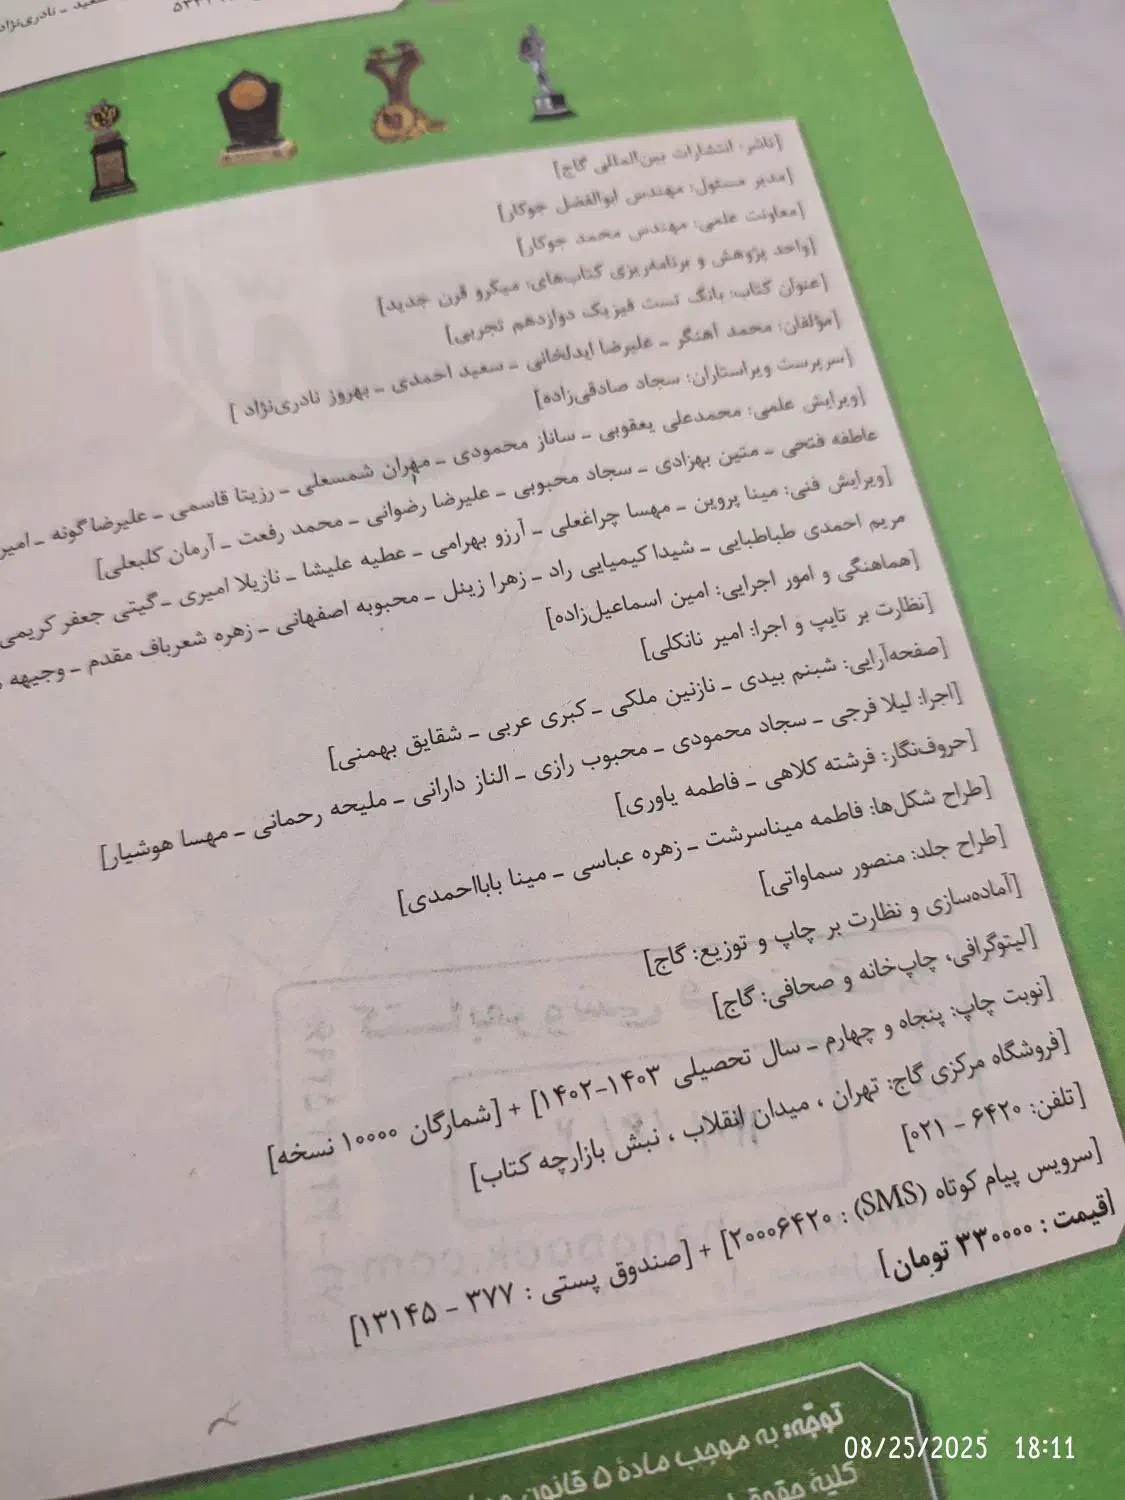 سعید ـ نادری‌نژاد
[ناشر: انتشارات بین‌المللی گاج]
[مدیر مسئول: مهندس ابوالفضل جوکار]
[معاونت علمی: مهندس محمد جوکار]
[واحد پژوهش و برنامه‌ریزی کتاب‌های: میکرو قرن جدید]
[عنوان کتاب: بانک تست فیزیک دوازدهم تجربی]
[مؤلفان: محمد آهنگر ـ علیرضا ایدلخانی ـ سعید احمدی ـ بهروز نادری‌نژاد ]
[سرپرست ویراستاران: سجاد صادقی‌زاده]
[ویرایش علمی: محمدعلی یعقوبی ـ ساناز محمودی ـ مهران شمسعلی ـ رزیتا قاسمی ـ علیرضا گونه ـ امیر
عاطفه فتحی ـ متین بهزادی ـ سجاد محبوبی ـ علیرضا رضوانی ـ محمد رفعت ـ آرمان گلبعلی]
[ویرایش فنی: مینا پروین ـ مهسا چراغعلی ـ آرزو بهرامی ـ عطیه علیشا ـ نازیلا امیری ـ گیتی جعفر کریمی
مریم احمدی طباطبایی ـ شیدا کیمیایی راد ـ زهرا زینل ـ محبوبه اصفهانی ـ زهره شعرباف مقدم ـ وجیهه
[هماهنگی و امور اجرایی: امین اسماعیل‌زاده]
[نظارت بر تایپ و اجرا: امیر نانکلی]
[صفحه‌آرایی: شبنم بیدی ـ نازنین ملکی ـ کبری عربی ـ شقایق بهمنی]
[اجرا: لیلا فرجی ـ سجاد محمودی ـ محبوب رازی ـ الناز دارانی ـ ملیحه رحمانی ـ مهسا هوشیار]
[حروف‌نگار: فرشته کلاهی ـ فاطمه یاوری]
[طراح شکل‌ها: فاطمه میناسرشت ـ زهره عباسی ـ مینا بابااحمدی]
[طراح جلد: منصور سماواتی]
[آماده‌سازی و نظارت بر چاپ و توزیع: گاج]
[لیتوگرافی، چاپ‌خانه و صحافی: گاج]
[نوبت چاپ: پنجاه و چهارم ـ سال تحصیلی ۱۴۰۳-۱۴۰۲] + [شمارگان ۱۰۰۰۰ نسخه]
[فروشگاه مرکزی گاج: تهران ، میدان انقلاب ، نبش بازارچه کتاب]
[تلفن: ۶۴۲۰ - ۰۲۱]
[سرویس پیام کوتاه (SMS) : ۲۰۰۰۶۴۲۰] + [صندوق پستی : ۳۷۷ - ۱۳۱۴۵]
[قیمت : ۳۳۰۰۰۰ تومان]
توجّه: به موجب مادهٔ ۵ قانون
کلیهٔ حقوق
08/25/2025 18:11